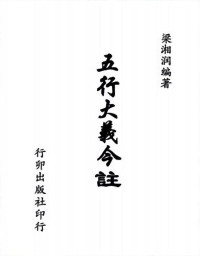 梁湘润編著
五行大義今註
行卯出版社印行